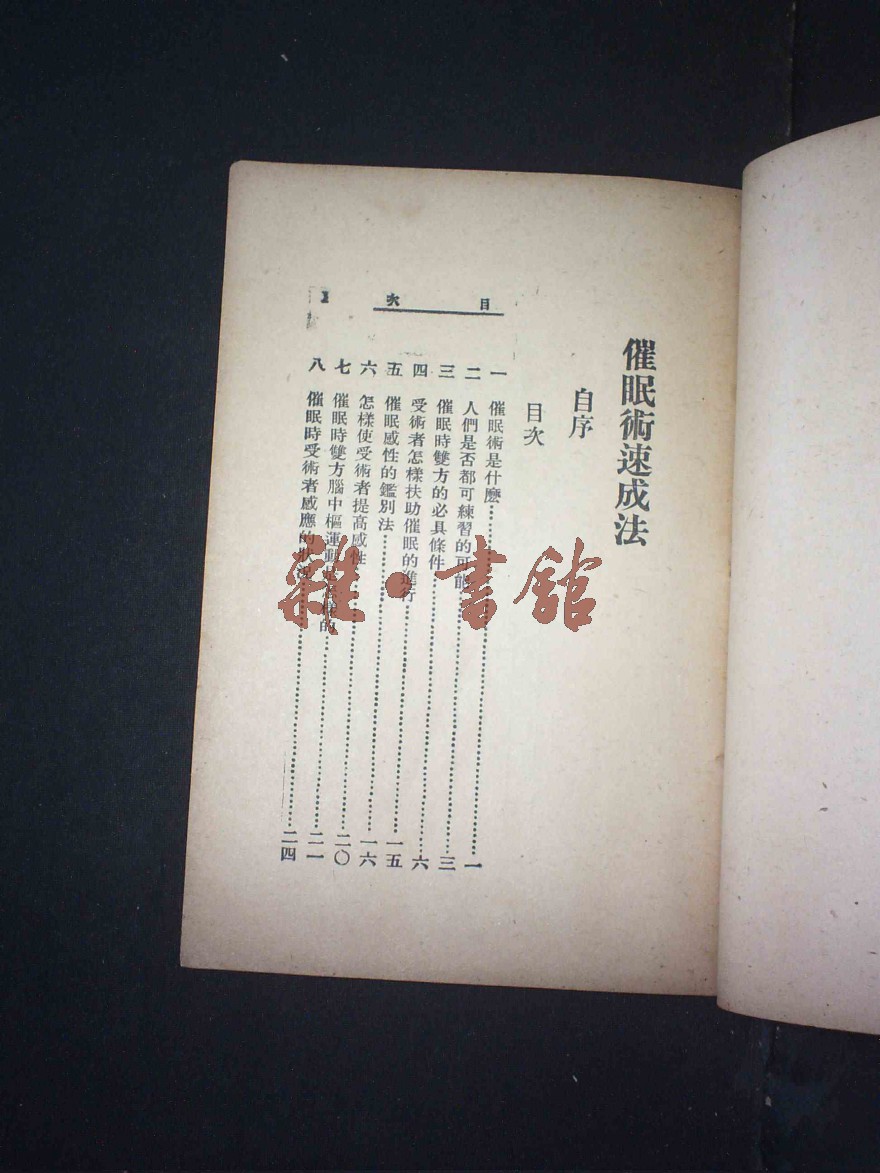 催眠術速成法
自序
目次
目次
一 催眠術是什麽 一
二 人們是否都可練習的可能 三
三 催眠時雙方的必具條件 六
四 受術者怎樣扶助催眠的進行 一五
五 催眠感性的鑑別法 一六
六 怎樣使受術者提高感性 二〇
七 催眠時雙方腦中樞運動 的 二一
八 催眠時受術者感應的狀況 二四
雜·書館